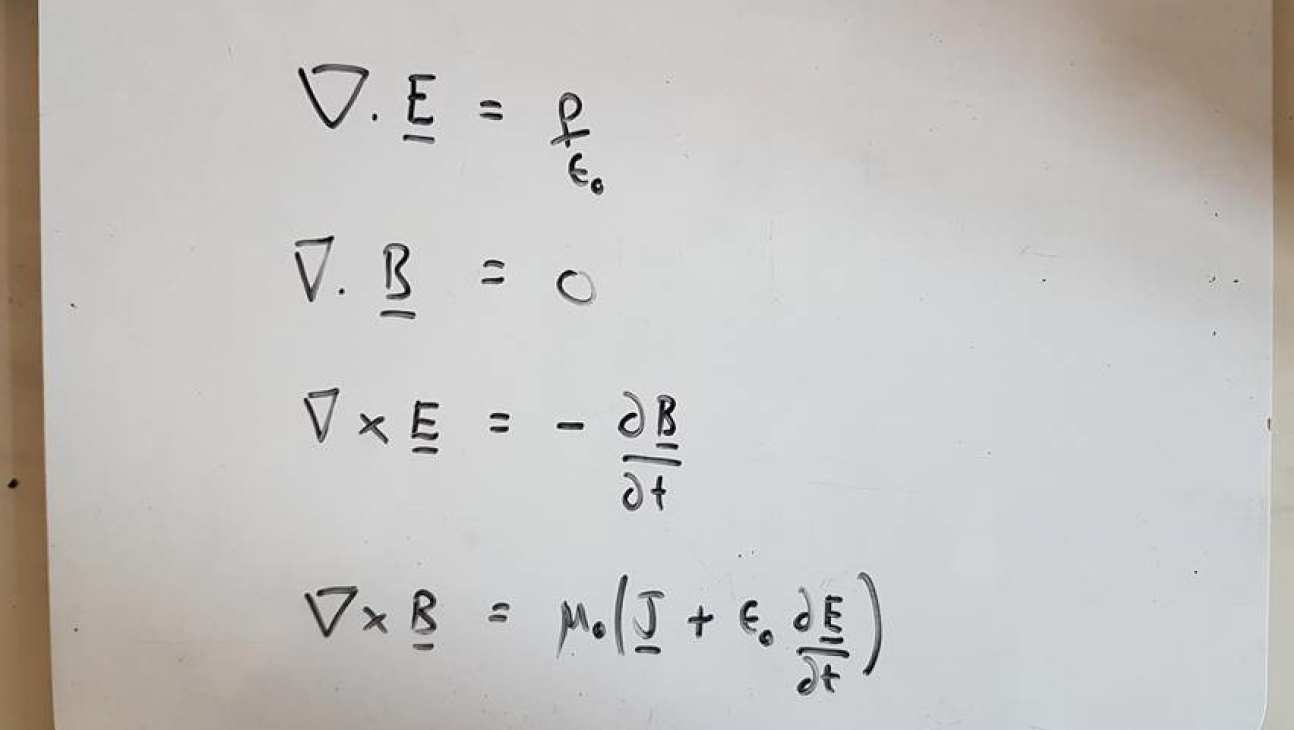 ∇. E̲ = ρ/ε₀
∇. B̲ = 0
∇ × E̲ = - ∂B̲/∂t
∇ × B̲ = μ₀(J̲ + ε₀ ∂E̲/∂t)